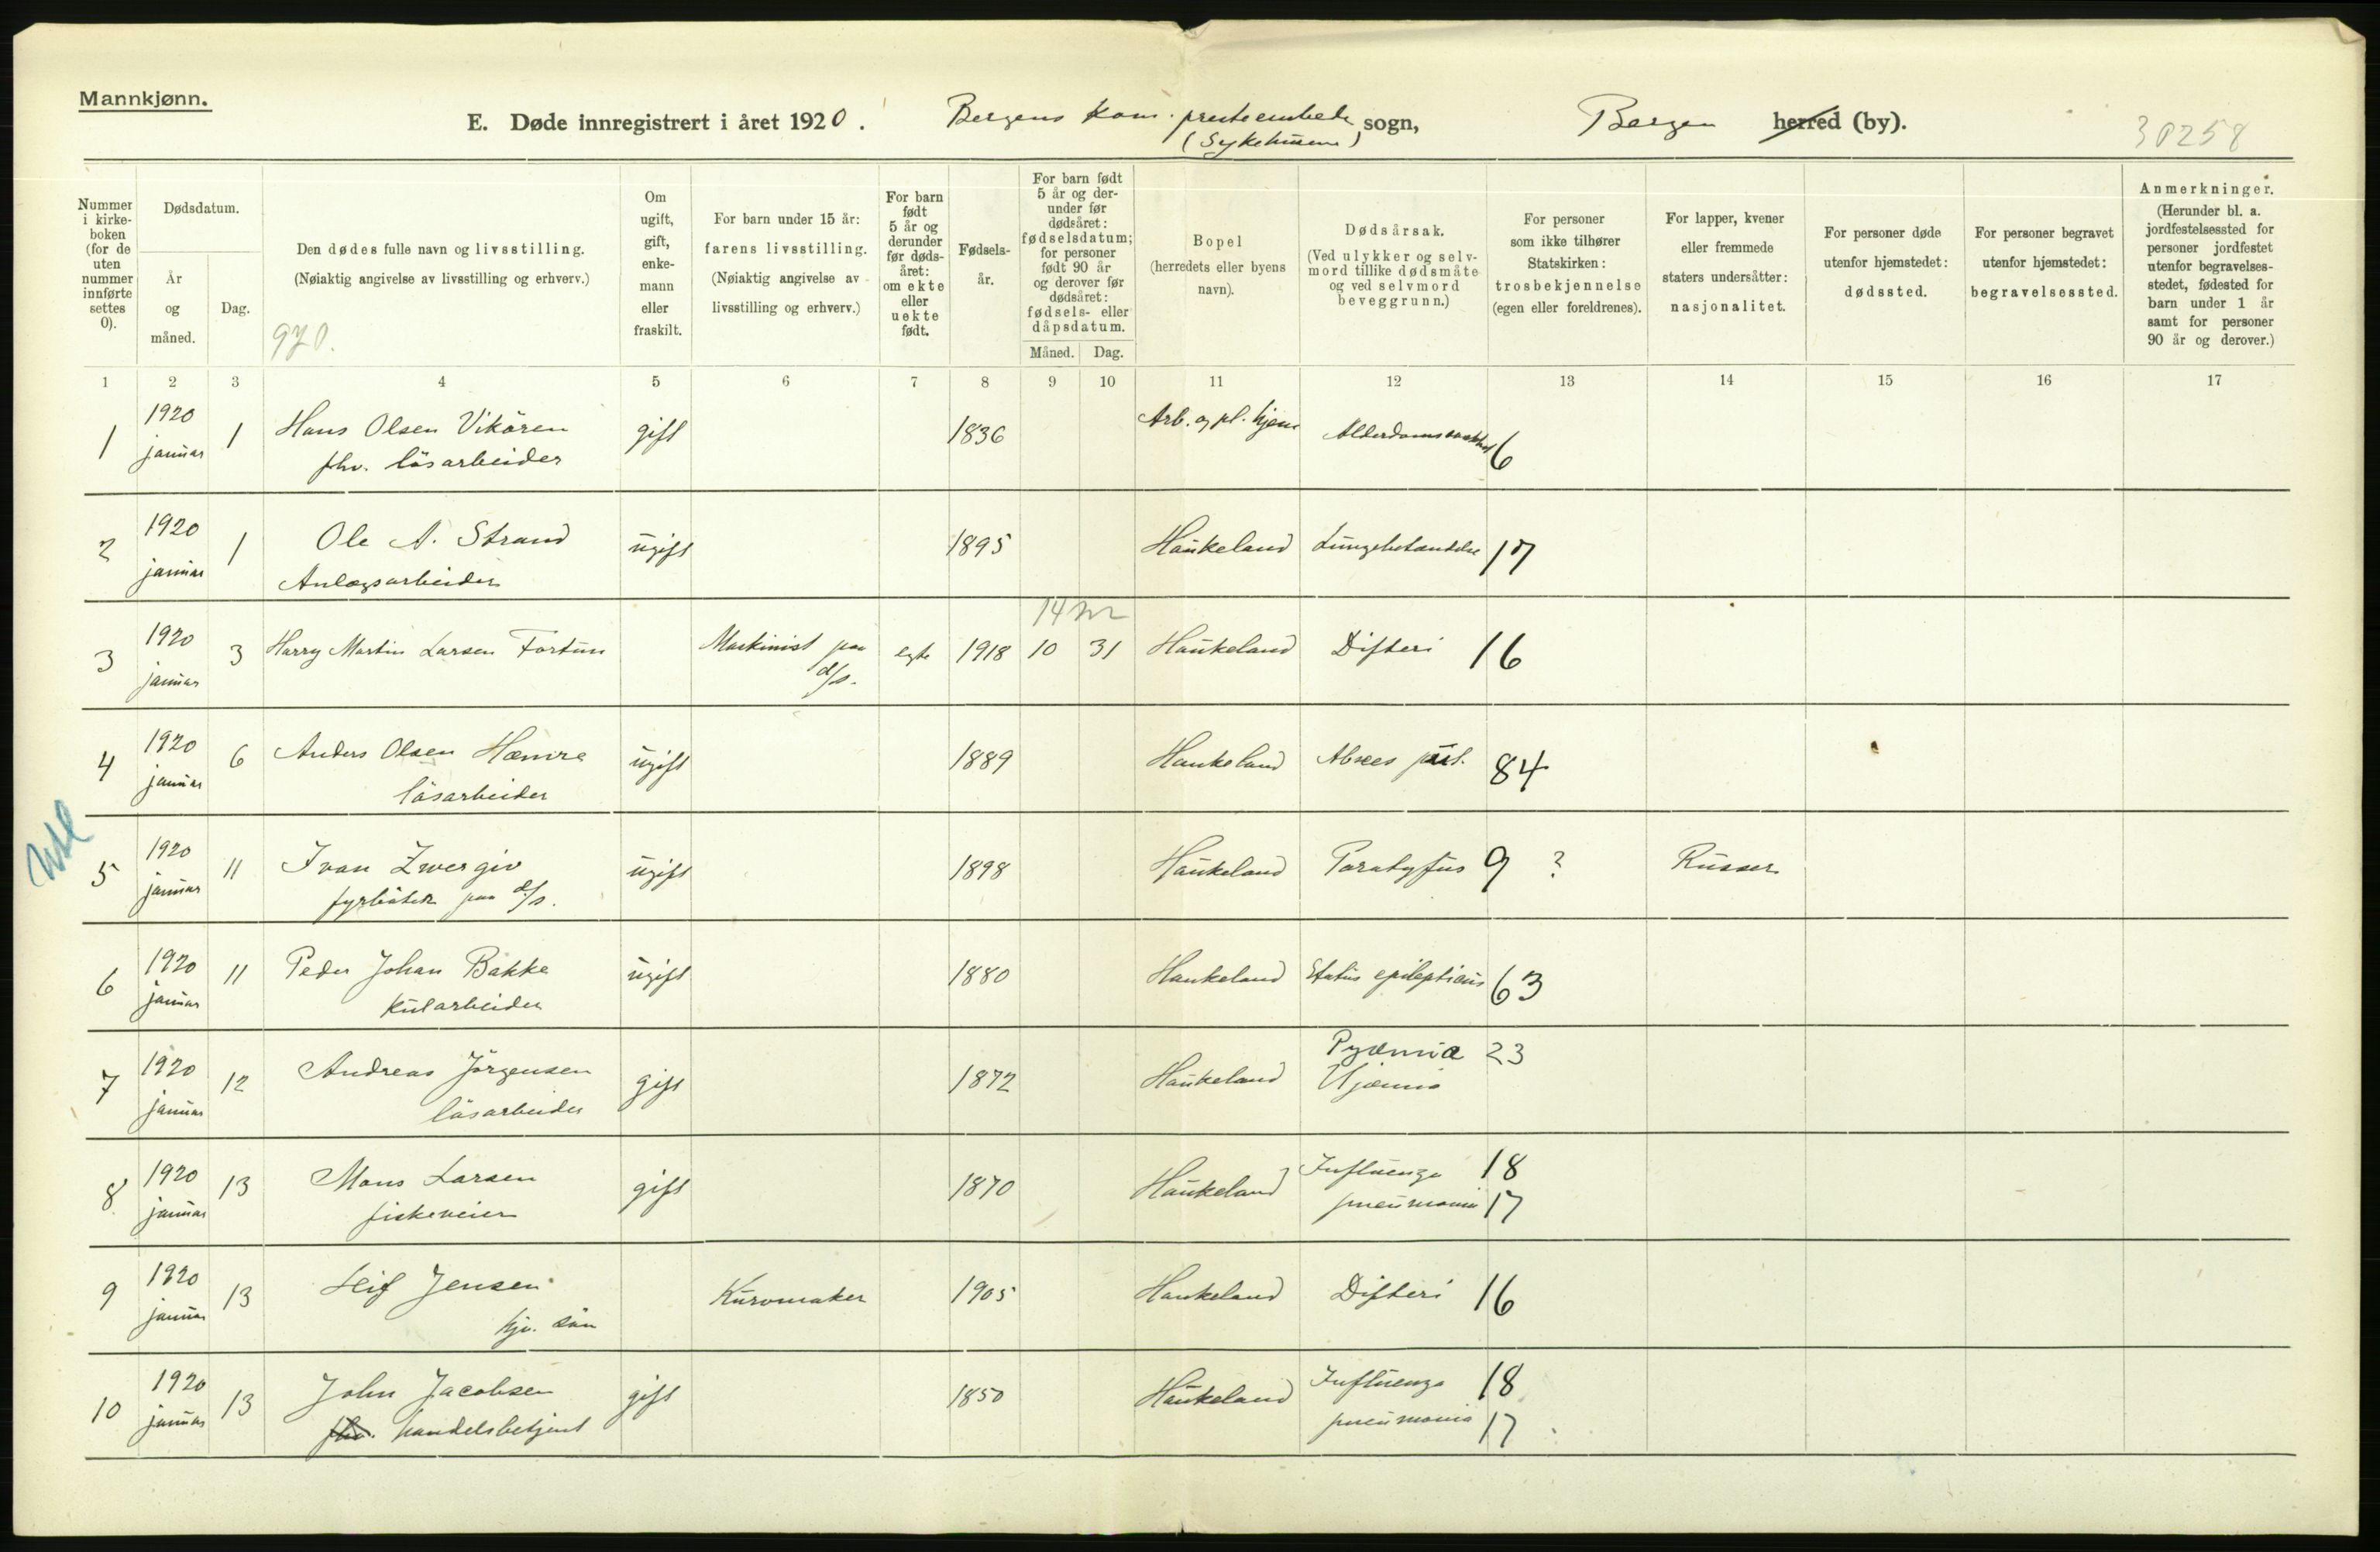 Mannkjønn.
E. Døde innregistrert i året 1920. Bergens kom. presteembede (Sykehusene) sogn, Bergen herred (by).
30258
Nummer i kirke-boken (for de uten nummer innførte settes 0).
Dødsdatum.
År og måned.
Dag.
Den dødes fulle navn og livsstilling.
(Nøiaktig angivelse av livsstilling og erhverv.)
970.
Om ugift, gift, enke-mann eller fraskilt.
For barn under 15 år: farens livsstilling.
(Nøiaktig angivelse av livsstilling og erhverv.)
For barn født 5 år og derunder før døds-året: om ekte eller uekte født.
Fødsels-år.
For barn født 5 år og der-under før dødsåret: fødselsdatum; for personer født 90 år og derover før dødsåret: fødsels- eller dåpsdatum.
Måned. Dag.
Bopel (herredets eller byens navn).
Dødsårsak.
(Ved ulykker og selv-mord tillike dødsmåte og ved selvmord beveggrunn.)
For personer som ikke tilhører Statskirken: trosbekjennelse (egen eller foreldrenes).
For lapper, kvener eller fremmede staters undersåtter: nasjonalitet.
For personer døde utenfor hjemstedet: dødssted.
For personer begravet utenfor hjemstedet: begravelsessted.
Anmerkninger.
(Herunder bl. a. jordfestelsessted for personer jordfestet utenfor begravelses-stedet, fødested for barn under 1 år samt for personer 90 år og derover.)
1 2 3 4 5 6 7 8 9 10 11 12 13 14 15 16 17
1 1920 januar 1 Hans Olsen Vikören gift 1836 Arb. og pl. hjem Alderdomssvakhet 6
fhv. løsarbeider
2 1920 januar 1 Ole A. Strand ugift 1895 Haukeland Lungebetændelse 17
Anlægsarbeider
14 m
3 1920 januar 3 Harry Martin Larsen Fortun Maskinist paa d/s. egte 1918 10 31 Haukeland Difteri 16
4 1920 januar 6 Anders Olsen Hamre ugift 1889 Haukeland Absces pul. 84
løsarbeider
5 1920 januar 11 Ivan Zwergiv ugift 1898 Haukeland Paratyfus 9 ? Russer
fyrbøter paa d/s.
6 1920 januar 11 Peder Johan Bakke ugift 1880 Haukeland Status epilepticus 63
kularbeider
7 1920 januar 12 Andreas Jörgensen gift 1872 Haukeland Pyæmia 23
løsarbeider
8 1920 januar 13 Mons Larsen gift 1870 Haukeland Influenza 18
fiskeveier pneumonia 17
9 1920 januar 13 Leif Jensen Kurvmaker 1905 Haukeland Difteri 16
hjv. søn
10 1920 januar 13 John Jacobsen gift 1850 Haukeland Influenza 18
fhv. handelsbetjent pneumonia 17